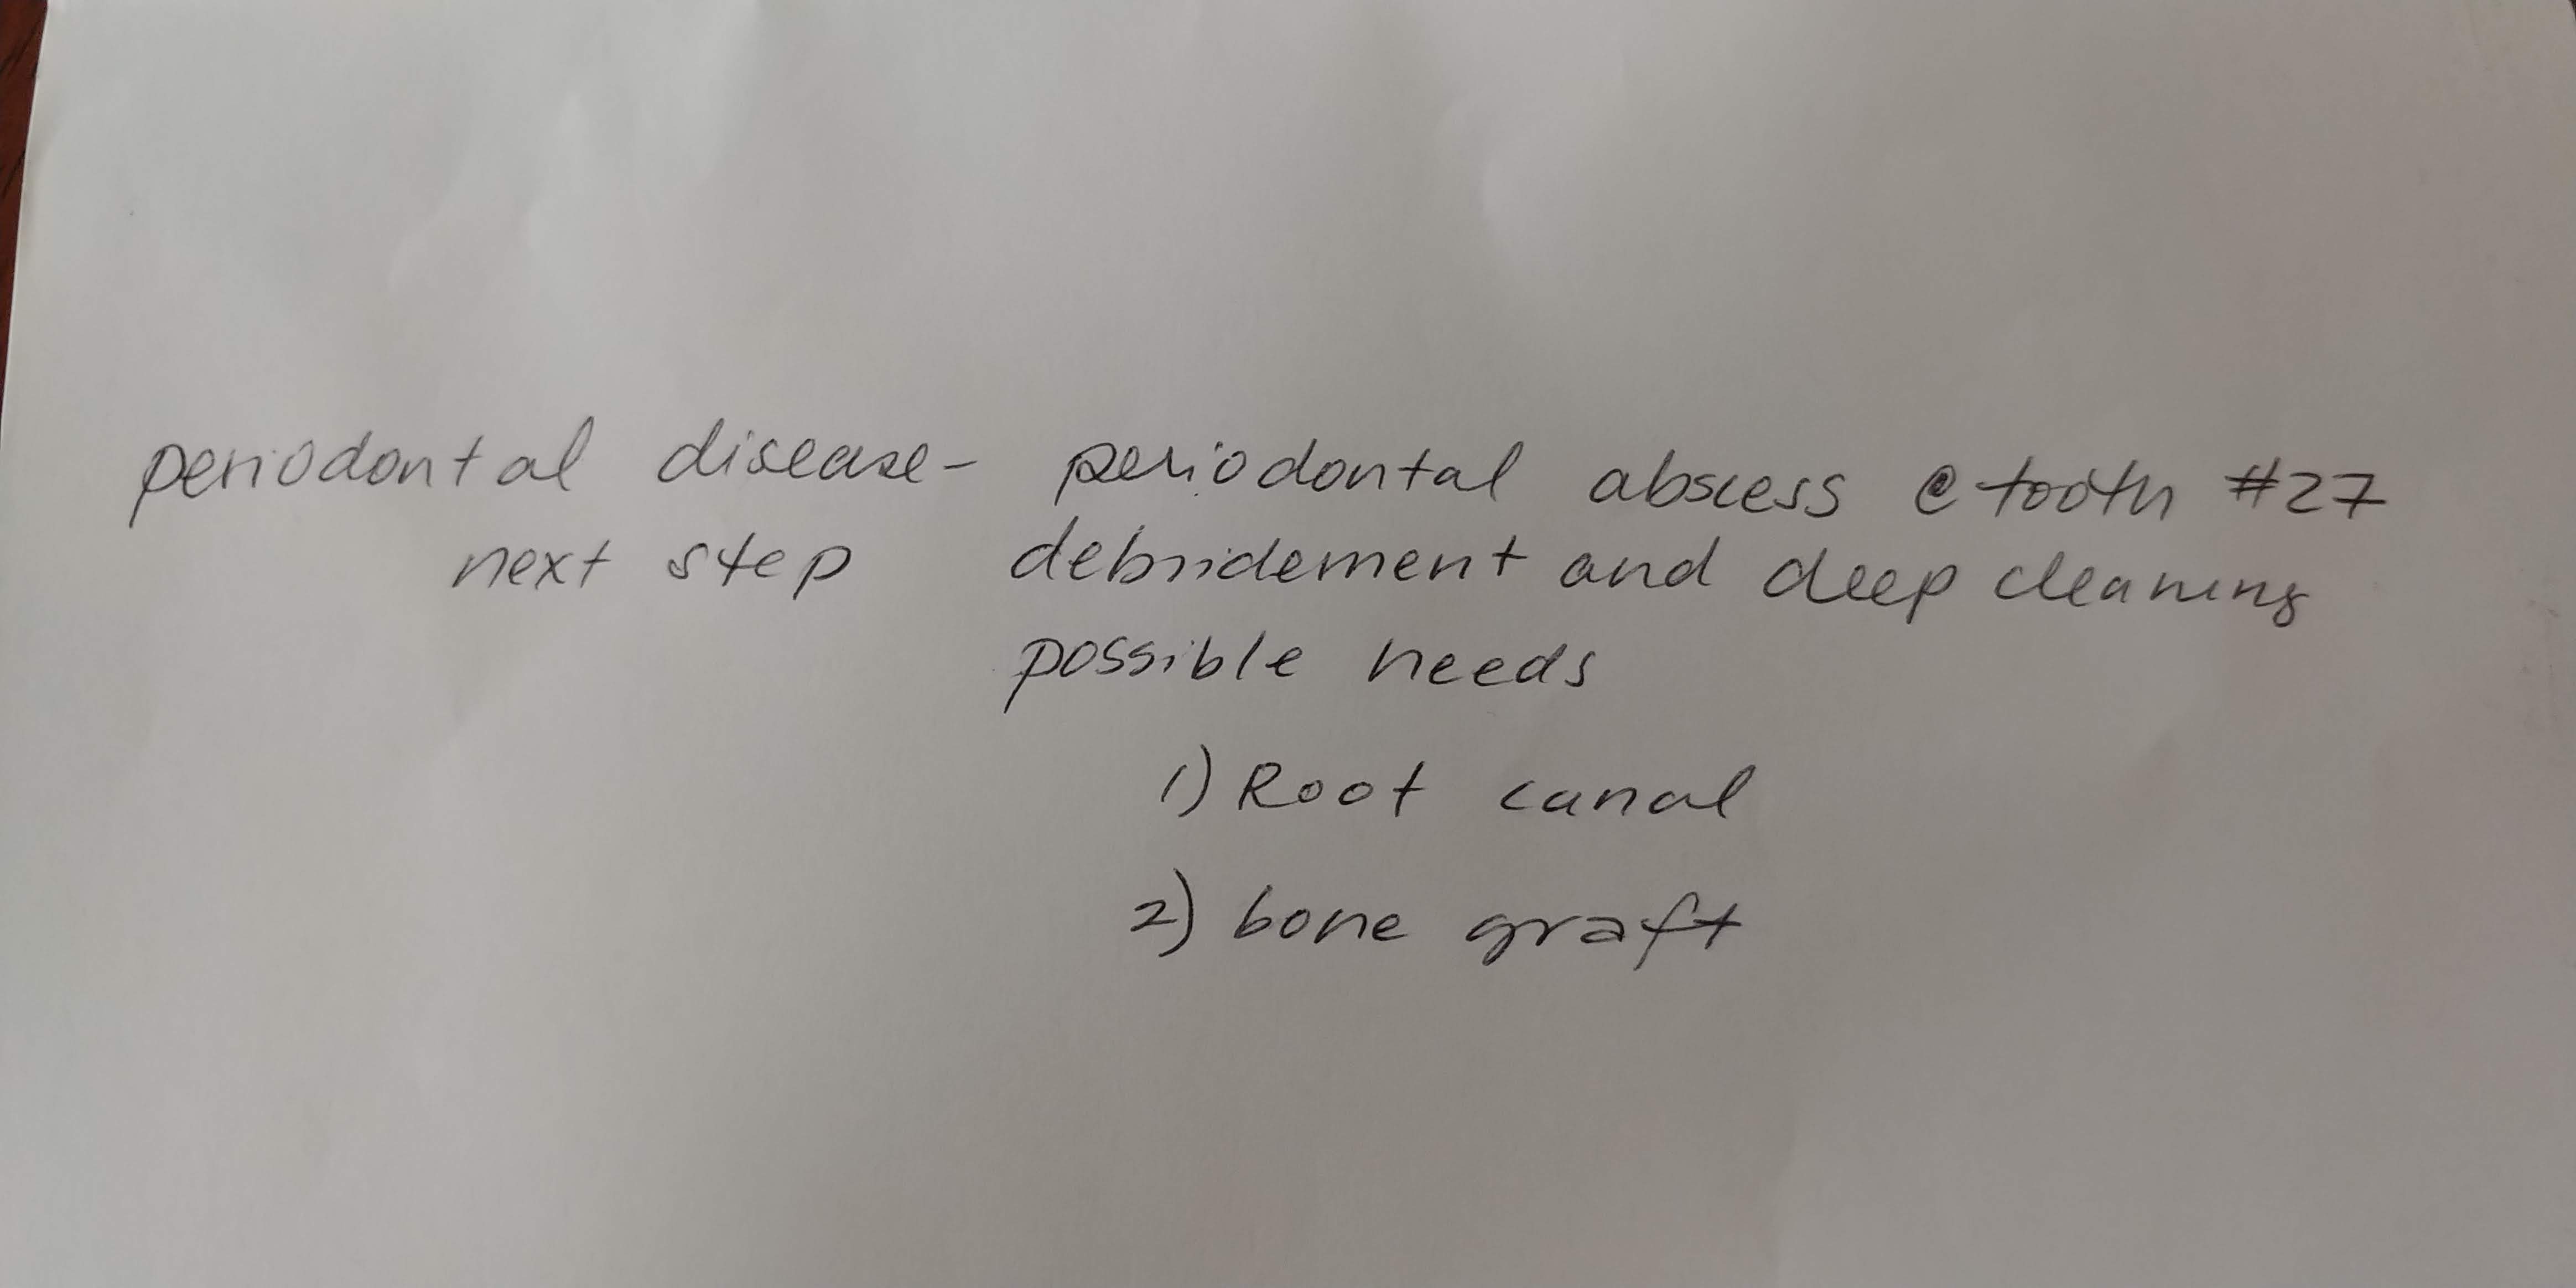 periodontal disease - periodontal abscess @ tooth #27
next step debridement and deep cleaning
possible needs
1) Root canal
2) bone graft